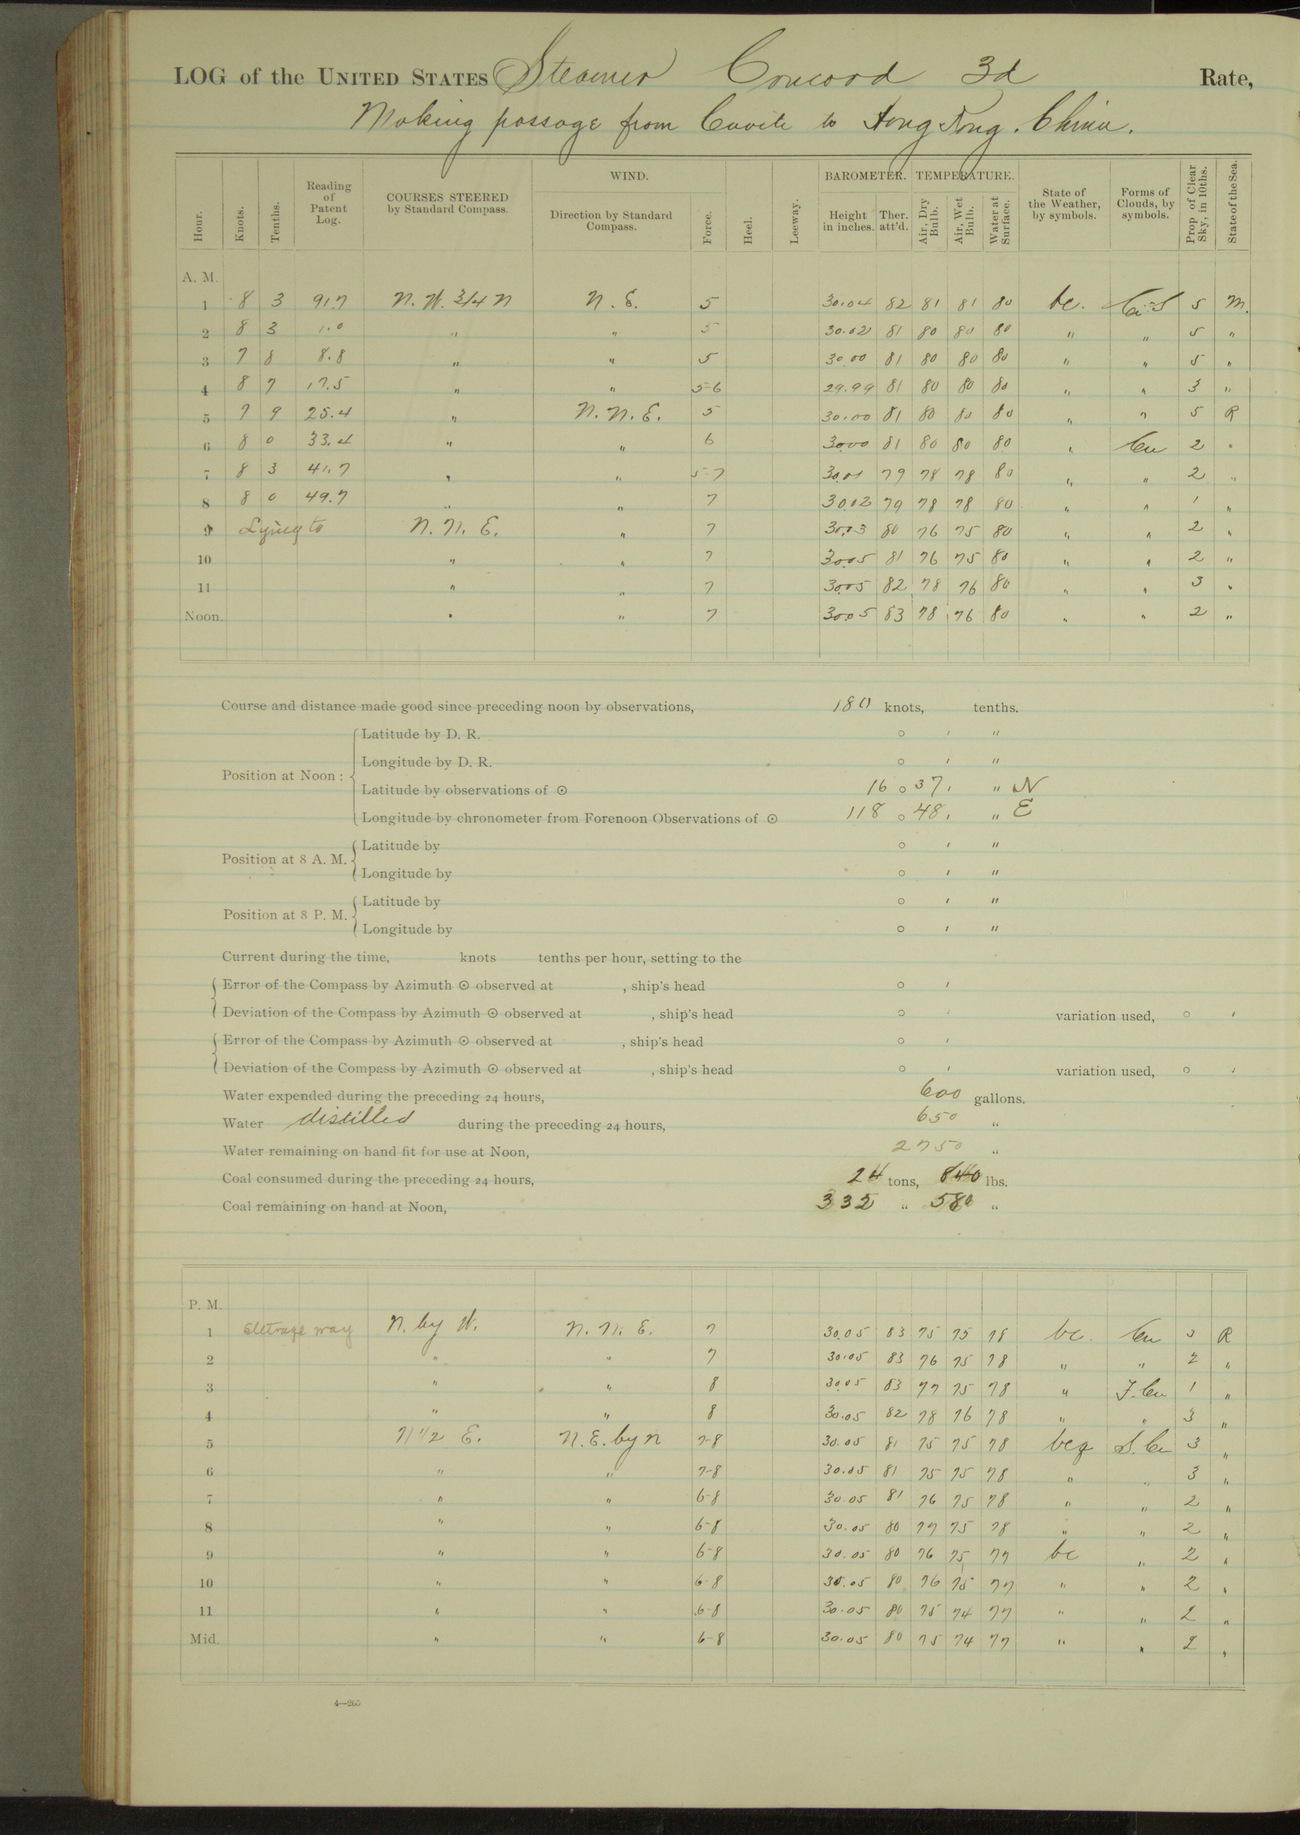 LOG of the UNITED STATES Steamer Concord 3d Rate,
Making passage from Cavite to Hong Kong. China.
Hour. Knots. Tenths. Reading of Patent Log. COURSES STEERED by Standard Compass. WIND. Direction by Standard Compass. Force. Heel. Leeway. BAROMETER. Height in inches. Ther. att'd. TEMPERATURE. Air, Dry Bulb. Air, Wet Bulb. Water at Surface. State of the Weather, by symbols. Forms of Clouds, by symbols. Prop of Clear Sky, in 10ths. State of the Sea.
A. M.
1 8 3 91.7 N. W. 3/4 N N. E. 5 30.04 82 81 81 80 bc. Ci-S 5 M.
2 8 3 1.0 " " 5 30.02 81 80 80 80 " " 5 "
3 7 8 8.8 " " 5 30.00 81 80 80 80 " " 5 "
4 8 7 17.5 " " 5-6 29.99 81 80 80 80 " " 3 "
5 7 9 25.4 " N. N. E. 5 30.00 81 80 80 80 " " 5 R
6 8 0 33.4 " " 6 30.00 81 80 80 80 " Cu 2 "
7 8 3 41.7 " " 5-7 30.01 79 78 78 80 " " 2 "
8 8 0 49.7 " " 7 30.02 79 78 78 80 " " 1 "
9 Lying to N. N. E. " 7 30.03 80 76 75 80 " " 2 "
10 " " 7 30.05 81 76 75 80 " " 2 "
11 " " 7 30.05 82 78 76 80 " " 3 "
Noon. " " 7 30.05 83 78 76 80 " " 2 "
Course and distance made good since preceding noon by observations, 180 knots, tenths.
Position at Noon:
Latitude by D. R. ° ′ ″
Longitude by D. R. ° ′ ″
Latitude by observations of ⊙ 16 ° 37 ′ ″ N
Longitude by chronometer from Forenoon Observations of ⊙ 118 ° 48 ′ ″ E
Position at 8 A. M. Latitude by ° ′ ″
Longitude by ° ′ ″
Position at 8 P. M. Latitude by ° ′ ″
Longitude by ° ′ ″
Current during the time, knots tenths per hour, setting to the
Error of the Compass by Azimuth ⊙ observed at , ship's head ° ′
Deviation of the Compass by Azimuth ⊙ observed at , ship's head ° ′ variation used, ° ′
Error of the Compass by Azimuth ⊙ observed at , ship's head ° ′
Deviation of the Compass by Azimuth ⊙ observed at , ship's head ° ′ variation used, ° ′
Water expended during the preceding 24 hours, 600 gallons.
Water distilled during the preceding 24 hours, 650 "
Water remaining on hand fit for use at Noon, 2750 "
Coal consumed during the preceding 24 hours, 24 tons, 840 lbs.
Coal remaining on hand at Noon, 332 " 580 "
P. M.
1 Steerage way N. by W. N. N. E. 7 30.05 83 75 75 78 bc. Cu 3 R
2 " " 7 30.05 83 76 75 78 " " 2 "
3 " " 8 30.05 83 77 75 78 " F. Cu 1 "
4 " " 8 30.05 82 78 76 78 " " 3 "
5 N 1/2 E. N. E. by N 7-8 30.05 81 75 75 78 bcq S. Cu 3 "
6 " " 7-8 30.05 81 75 75 78 " " 3 "
7 " " 6-8 30.05 81 76 75 78 " " 2 "
8 " " 6-8 30.05 80 77 75 78 " " 2 "
9 " " 6-8 30.05 80 76 75 77 bc " 2 "
10 " " 6-8 30.05 80 76 75 77 " " 2 "
11 " " 6-8 30.05 80 75 74 77 " " 2 "
Mid. " " 6-8 30.05 80 75 74 77 " " 2 "
4—265